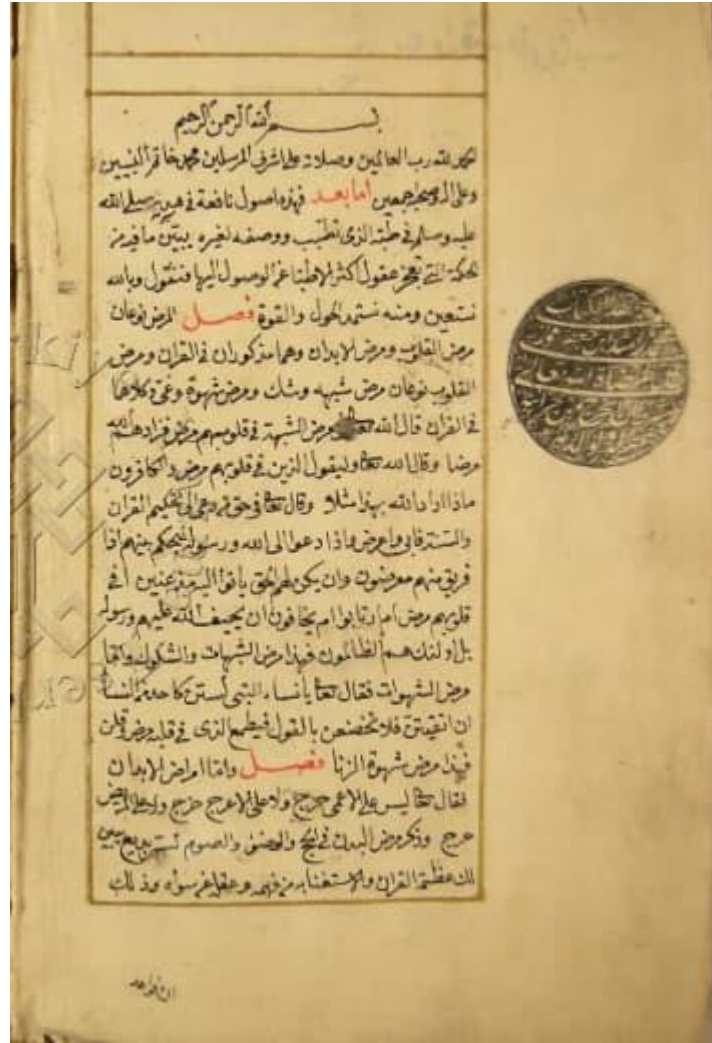 بسم الله الرحمن الرحيم
الحمد لله رب العالمين وصلاته على اشرف المرسلين محمد خاتم النبيين
وعلى اله وصحبه اجمعين اما بعد فهذه اصول نافعة في هديه صلى الله
عليه وسلم في طبه الذى تطبب ووصفه لغيره يبين ما فيه من
الحكمة التي تعجز عقول اكثر الاطبا عن الوصول اليها فنقول وبالله
نستعين ومنه نستمد الحول والقوة فصل المرض نوعان
مرض القلوب ومرض الابدان وهما مذكوران في القران ومرض
القلوب نوعان مرض شبهه وشك ومرض شهوة وغي وكلاهما
في القران قال الله تعا مرض الشبهة في قلوبهم مرض فزادهم الله
مرضا وقال الله تعا وليقول الذين في قلوبهم مرض والكافرون
ماذا اراد الله بهذا مثلا وقال تعا في حق من دعى الى تحكيم القران
والسنة فابى واعرض واذا دعوا الى الله ورسوله ليحكم بينهم اذا
فريق منهم معرضون وان يكن لهم الحق ياتوا اليه مذعنين افي
قلوبهم مرض ام ارتابوا ام يخافون ان يحيف الله عليهم ورسوله
بل اولئك هم الظالمون فهذا مرض الشبهات والشكوك واما
مرض الشهوات فقال تعا يا نساء النبي لستن كاحد من النساء
ان اتقيتن فلا تخضعن بالقول فيطمع الذى في قلبه مرض وقلن
فهذا مرض شهوة الزنا فصل واما امراض الابدان
فقال تعا ليس على الاعمى حرج ولا على الاعرج حرج ولا على المريض
حرج وذكر مرض البدن في الحج والوضوء والصوم لسر بديع يبين
لك عظمة القران والاستغناء به لمن فهمه وعقله عن سواه وذلك
ان قواعد